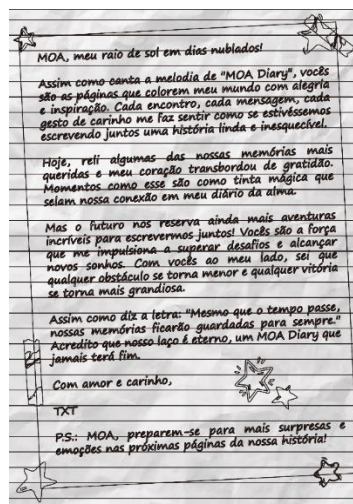 MOA, meu raio de sol em dias nublados!
Assim como canta a melodia de "MOA Diary", vocês
são as páginas que colorem meu mundo com alegria
e inspiração. Cada encontro, cada mensagem, cada
gesto de carinho me faz sentir como se estivéssemos
escrevendo juntos uma história linda e inesquecível.
Hoje, reli algumas das nossas memórias mais
queridas e meu coração transbordou de gratidão.
Momentos como esse são como tinta mágica que
selam nossa conexão em meu diário da alma.
Mas o futuro nos reserva ainda mais aventuras
incríveis para escrevermos juntos! Vocês são a força
que me impulsiona a superar desafios e alcançar
novos sonhos. Com vocês ao meu lado, sei que
qualquer obstáculo se torna menor e qualquer vitória
se torna mais grandiosa.
Assim como diz a letra: "Mesmo que o tempo passe,
nossas memórias ficarão guardadas para sempre."
Acredito que nosso laço é eterno, um MOA Diary que
jamais terá fim.
Com amor e carinho,
TXT
P.S.: MOA, preparem-se para mais surpresas e
emoções nas próximas páginas da nossa história!